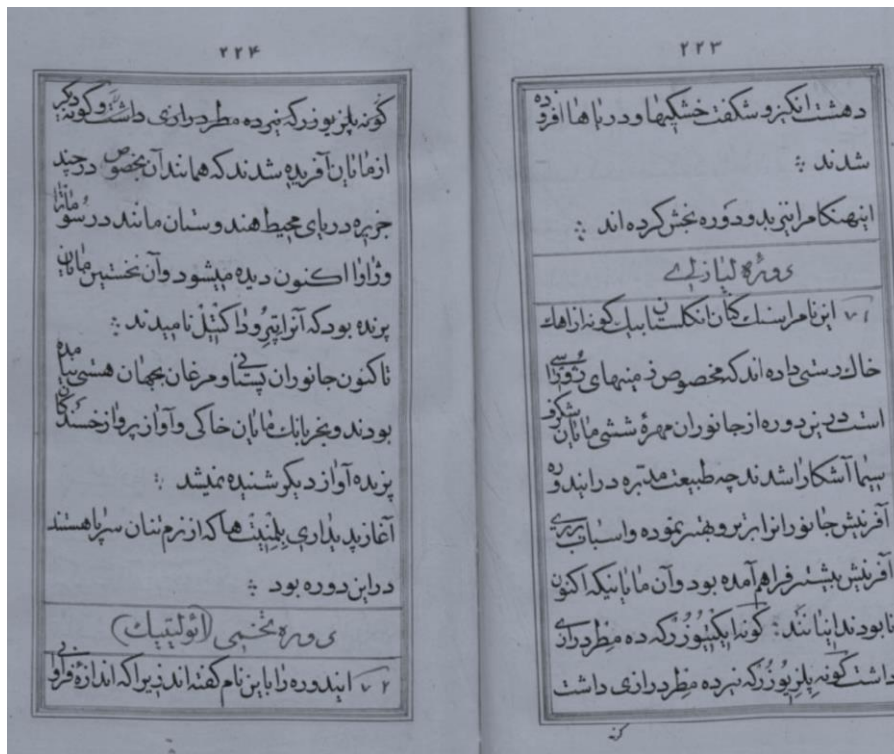 ۲۲۳
دهشت انگیز و شگفت خشکیها و دریاها افزوده
شدند ؞
اینهنگام را نیز بدو دوره بخش کرده اند ؞
دوره لیازیه
۷۱ این نام را سنگ کنان انگلستان بیک گونه از اهک
خاک رستی داده اند که مخصوص زمینهای ژورایی
است درین دوره از جانوران مهرهٔ ششی مامایان شگرف
سیما آشکارا شدند چه طبیعت مدبره در ایندوره
آفرینش جانورانرا برتر و بهتر نموده و اسباب برتری
آفرینش بیشتر فراهم آمده بود و آن مامایانیکه اکنون
نابودند اینانند: گونه ایکتیوزر که ده مطر درازی
داشت گونه پلزیوزر که نیز ده مطر درازی داشت
۲۲۴
گونه پلزیوزر که نیز ده مطر درازی داشت و گونه دیگر
از مامایان آفریده شدند که همانند آن بخصوص در چند
جزیره دریای محیط هندوستان مانند در سوماترا
و ژاوا اکنون دیده میشود و آن نخستین مامایان
پرنده بود که آنرا پتروداکتیل نامیدند ؞
تاکنون جانوران پستانی و مرغان بجهان هستی نیامده
بودند و بجز بانگ مامایان خاکی و آواز پرواز خسندگان
پرنده آواز دیگر شنیده نمیشد ؞
آغاز پدیداری بلمنیت ها که از نرم تنان سرپا هستند
در این دوره بود ؞
دوره تخمی (ائولیتیک)
۷۲ ایندوره را باین نام گفته اند زیرا که اندازهٔ فراوا